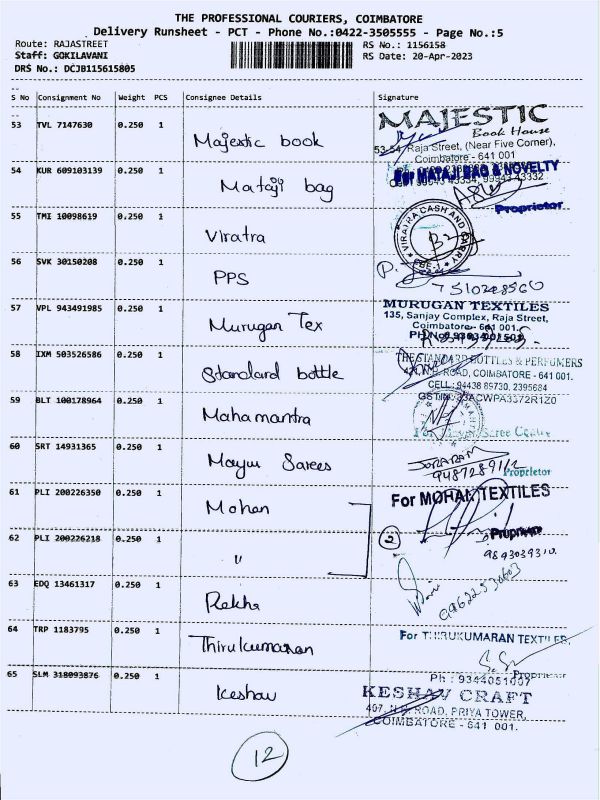 THE PROFESSIONAL COURIERS, COIMBATORE
Delivery Runsheet - PCT - Phone No.:0422-3505555 - Page No.:5
Route: RAJASTREET
RS No.: 1156158
Staff: GOKILAVANI
RS Date: 20-Apr-2023
DRS No.: DCJB115615805
S No Consignment No Weight PCS Consignee Details Signature
53 TVL 7147630 0.250 1 Majestic book
MAJESTIC
Book House
53-54, Raja Street, (Near Five Corner),
Coimbatore - 641 001
54 KUR 609103139 0.250 1 Mataji bag
For MATAJI BAG & NOVELTY
Proprietor
55 TMI 10098619 0.250 1 Viratra
VIRATRA CASH AND CARRY
CBE-1
56 SVK 30150208 0.250 1 PPS
P.
7510228560
57 VPL 943491985 0.250 1 Murugan Tex
MURUGAN TEXTILES
135, Sanjay Complex, Raja Street,
Coimbatore- 641 001.
58 IXM 503526586 0.250 1 Standard bottle
THE STANDARD BOTTLES & PERFUMERS
ROAD, COIMBATORE - 641 001.
CELL : 94438 89730, 2395684
GSTIN: 33ACWPA3372R1Z0
59 BLT 100178964 0.250 1 Mahamantra
60 SRT 14931365 0.250 1 Mayur Sarees
Proprietor
61 PLI 200226350 0.250 1 Mohan
For MOHAN TEXTILES
62 PLI 200226218 0.250 1 "
2
Proprietor
9843039310.
63 EDQ 13461317 0.250 1 Rekha
64 TRP 1183795 0.250 1 Thirukumaran
For THIRUKUMARAN TEXTILES,
Proprietor
65 SLM 318093876 0.250 1 Keshav
Ph : 9344051007
KESHAV CRAFT
407, N.H. ROAD, PRIYA TOWER,
COIMBATORE - 641 001.
12